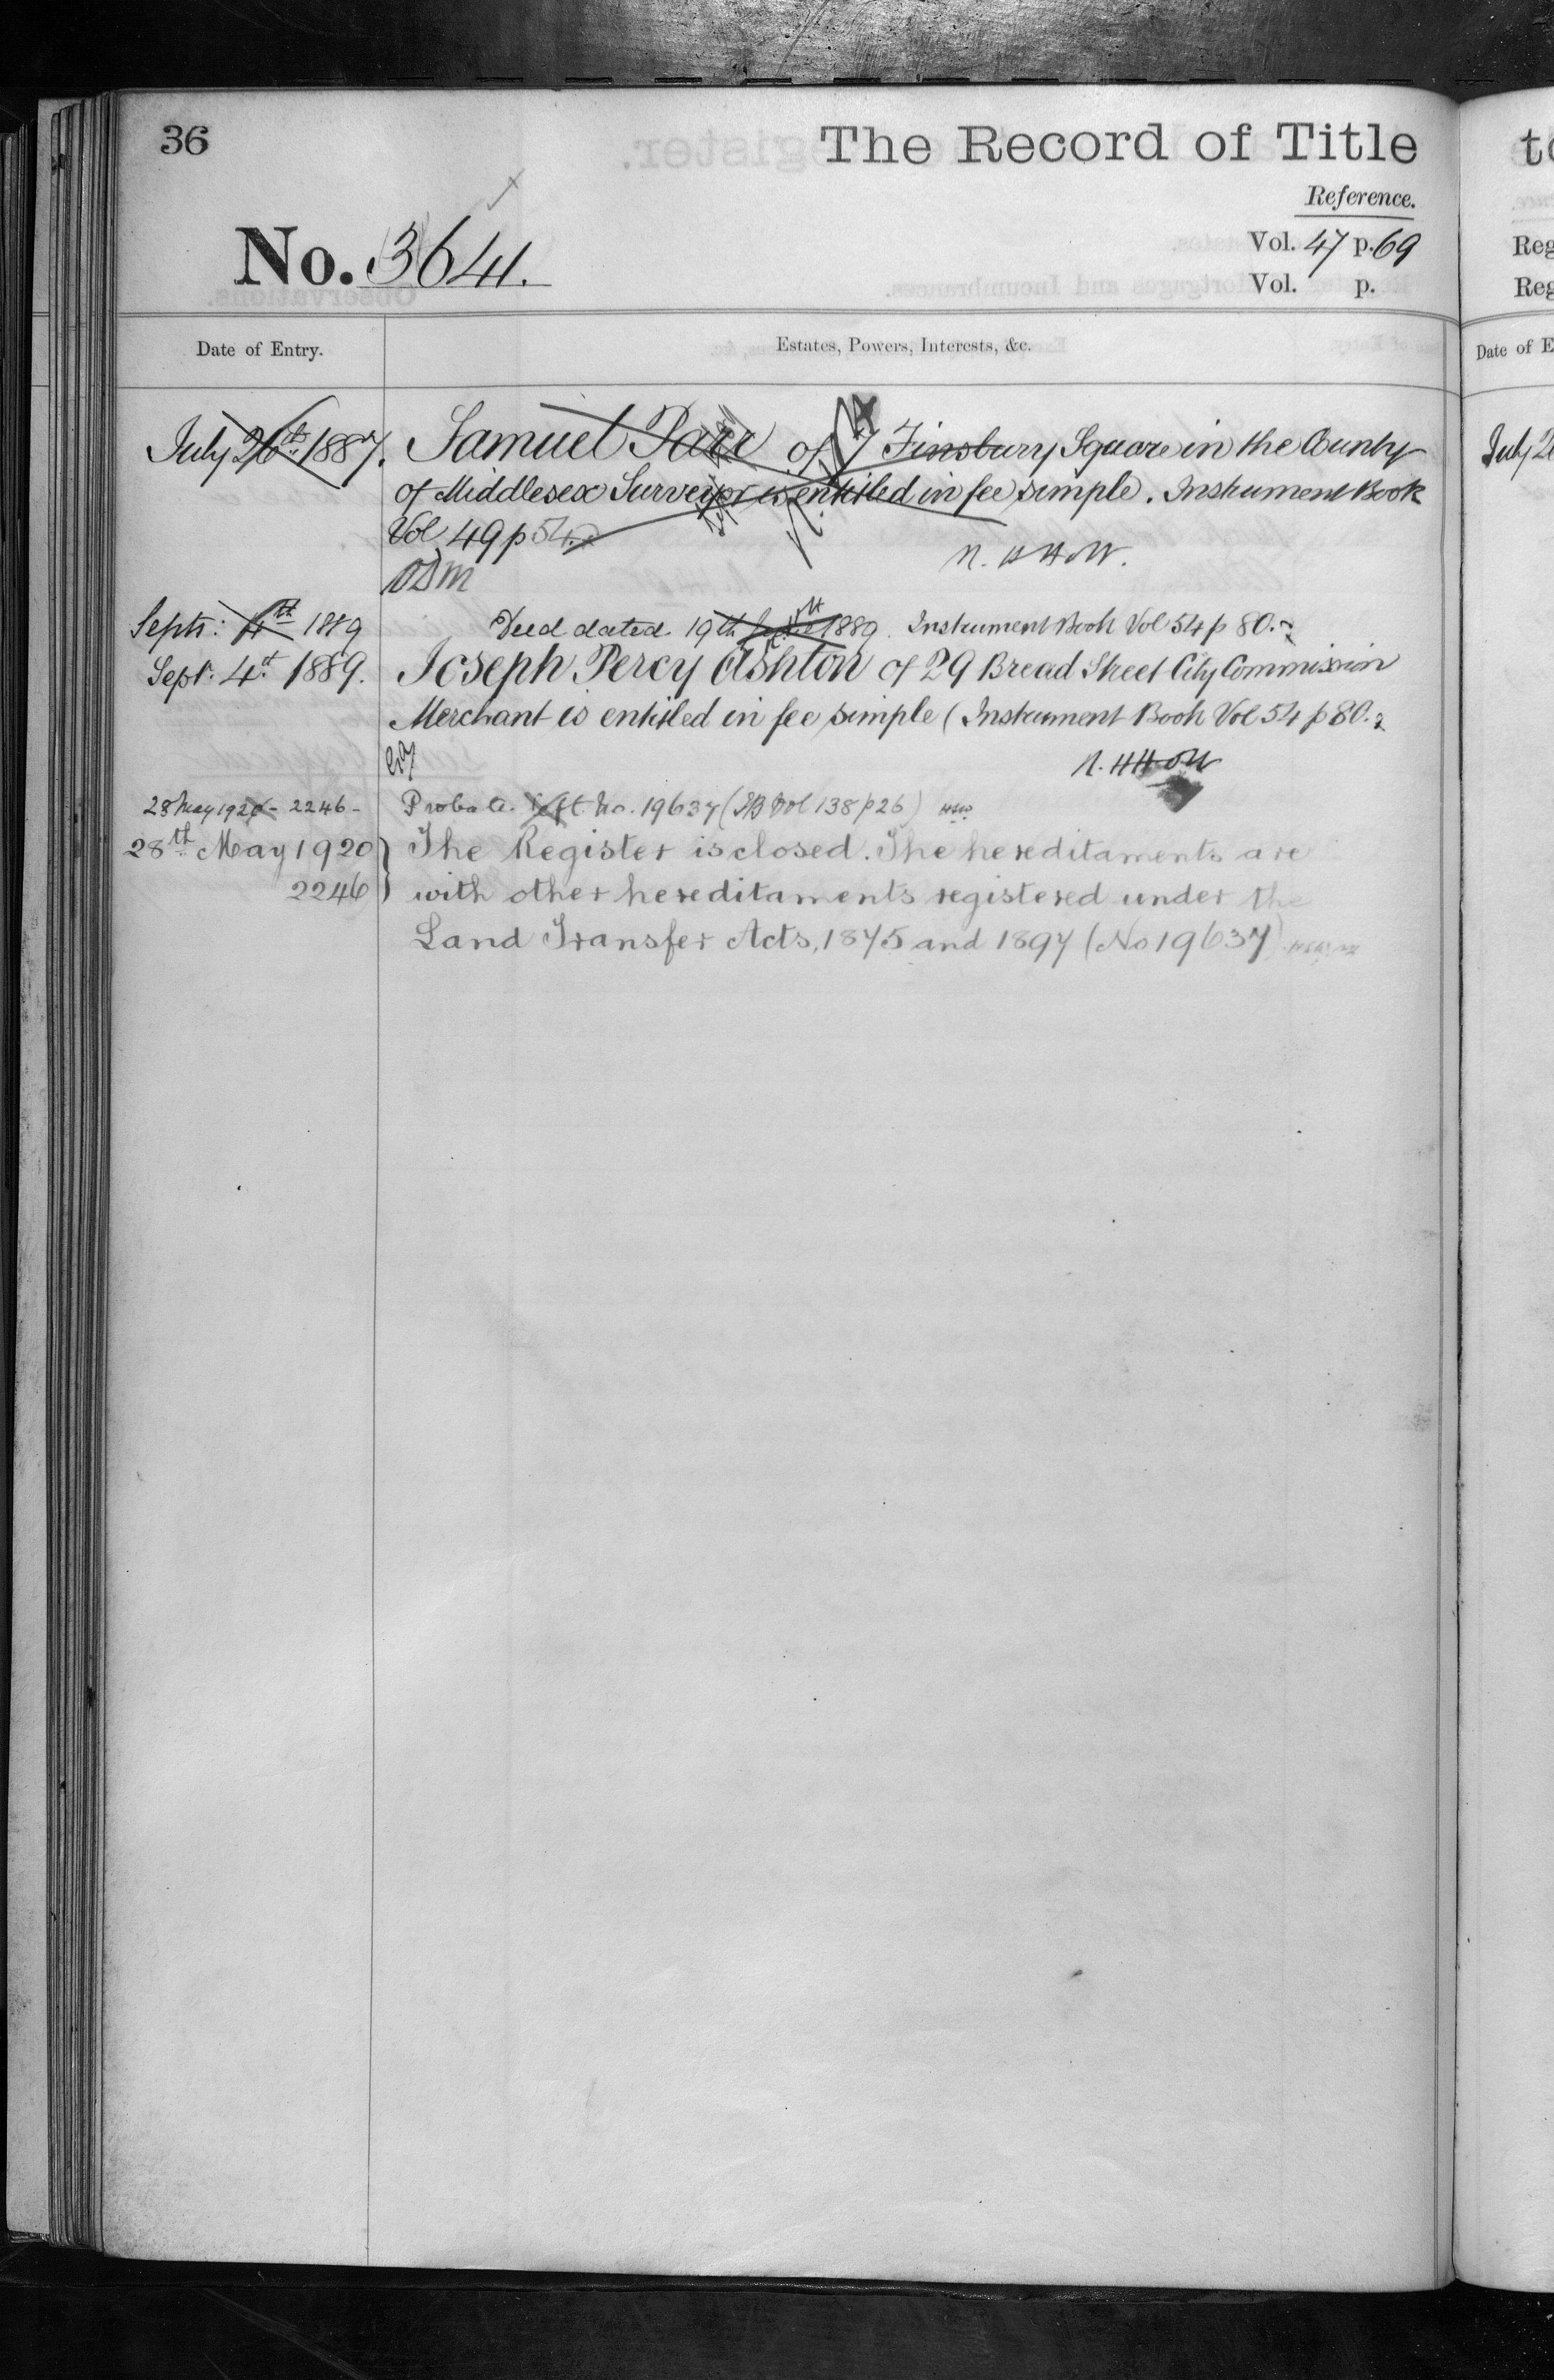 36
The Record of Title
Reference.
No. 3641.
Vol. 47 p. 69
Vol. p.
Date of Entry.
Estates, Powers, Interests, &c.
July 26th 1887. Samuel Parr of 7 Finsbury Square in the County
of Middlesex Surveyor is entitled in fee simple. Instrument Book
Vol 49 p 54.
Septr: 4th 1889 Deed dated 19th 1889. Instrument Book Vol 54 p 80.
Sept: 4th 1889. Joseph Percy Ashton of 29 Bread Street City Commission
Merchant is entitled in fee simple (Instrument Book Vol 54 p 80.
28 May 1920 - 2246 - Probate. No. 19637 (IB Vol 138 p 26)
28th May 1920 } The Register is closed. The hereditaments are
2246 } with other hereditaments registered under the
Land Transfer Acts, 1875 and 1897 (No 19637)
to
Reg
Reg
Date of E
July 2